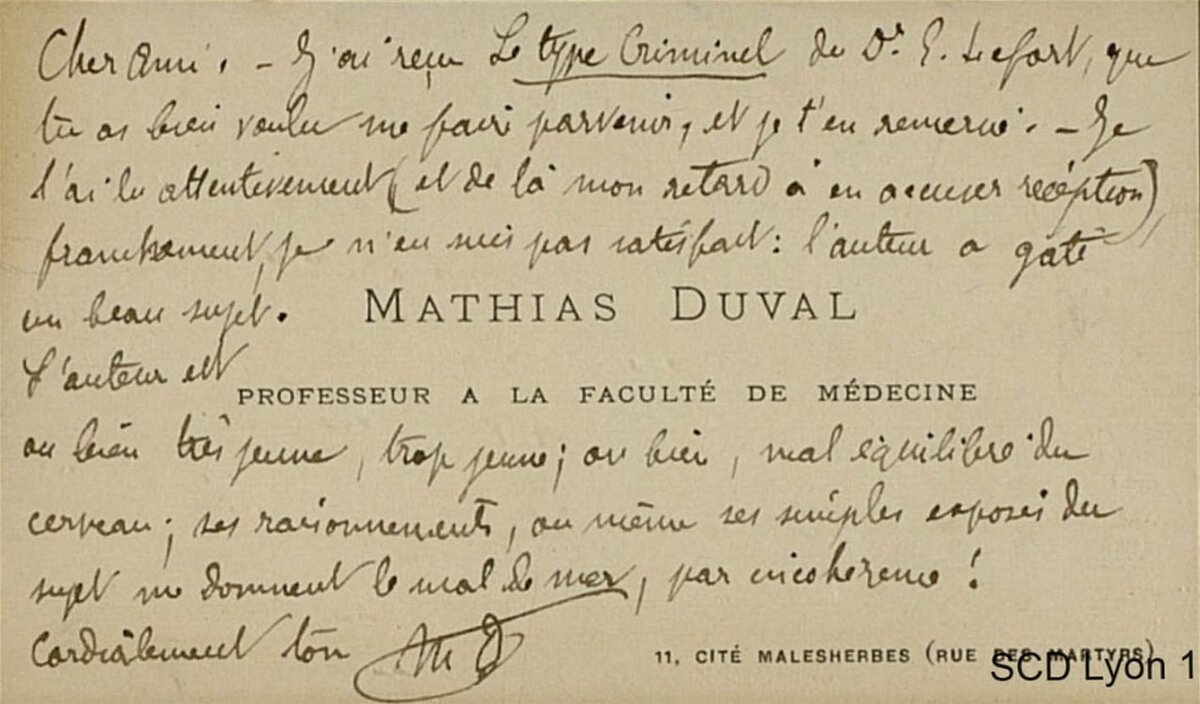 Cher ami. – J'ai reçu Le type Criminel du Dr E. Lefort, que
tu as bien voulu me faire parvenir, et je t'en remercie. – Je
l'ai lu attentivement (et de là mon retard à en accuser réception)
franchement, je n'en suis pas satisfait : l'auteur a gaté
un beau sujet.
MATHIAS DUVAL
L'auteur est
PROFESSEUR A LA FACULTÉ DE MÉDECINE
ou bien très jeune, trop jeune ; ou bien, mal équilibré du
cerveau ; ses raisonnements, ou même ses simples exposés du
sujet me donnent le mal de mer, par incohérence !
Cordialement ton MD
11, CITÉ MALESHERBES (RUE DES MARTYRS)
SCD Lyon 1